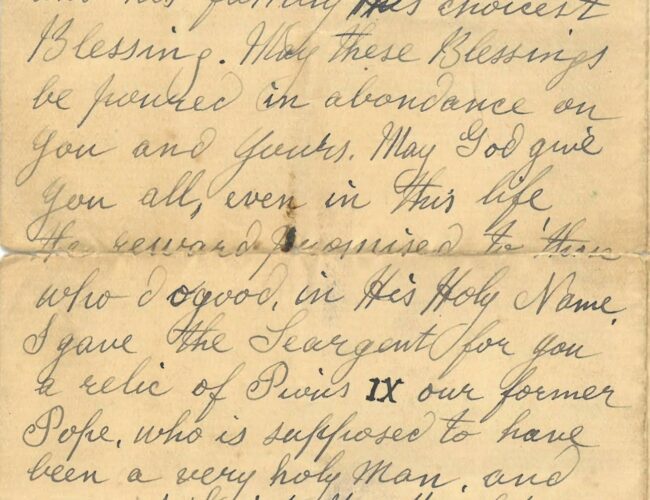 and his family His choicest
Blessing. May these Blessings
be poured in abondance on
you and yours. May God give
you all, even in this life
the reward promised to them
who do good, in His Holy Name.
I gave the Seargent for you
a relic of Pivus IX our former
Pope, who is supposed to have
been a very holy Man, and